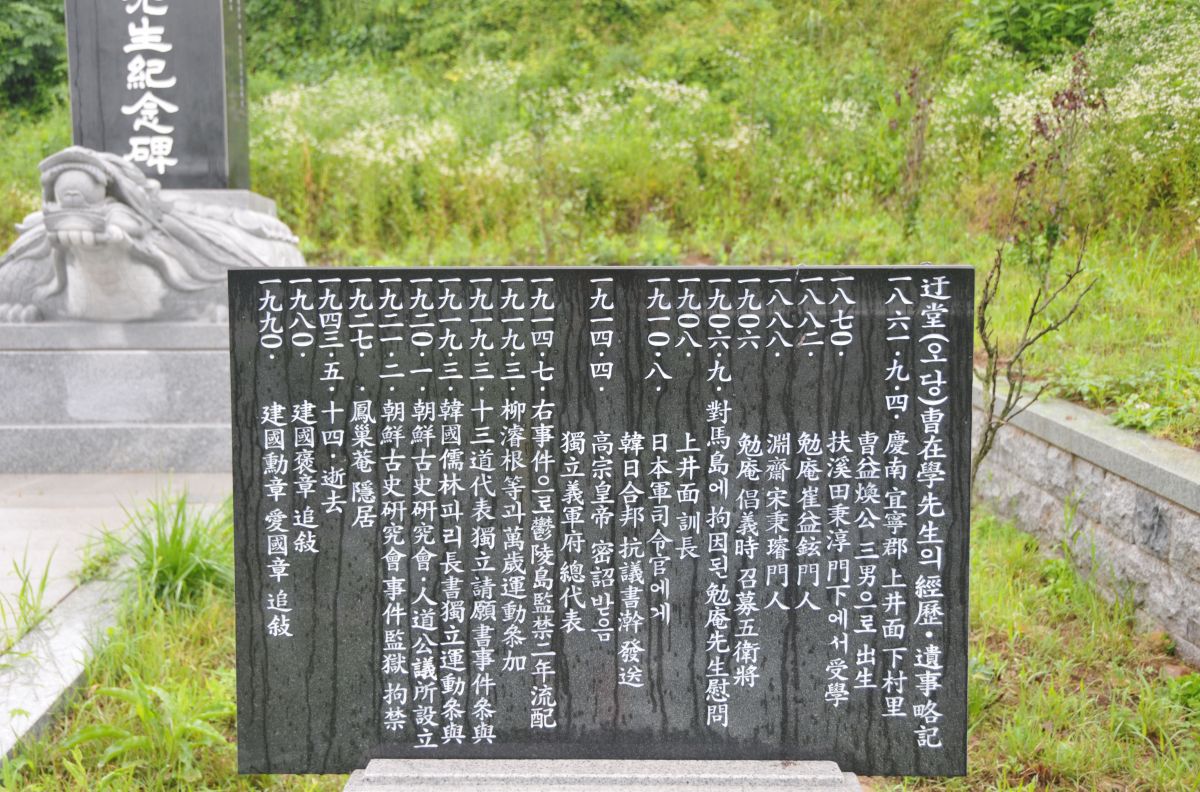 迂堂(오당)曺在學先生의 經歷·遺事略記
一八六一·九·四· 慶南 宜寧郡 上井面 下村里
曺益煥公 三男으로 出生
一八七０· 扶溪田秉淳門下에서 受學
一八八二· 勉庵崔益鉉門人
一八八八· 淵齋宋秉璿門人
一九０六 勉庵 倡義時 召募五衛將
一九０六·九· 對馬島에 拘因된 勉庵先生慰問
一九０八· 上井面 訓長
一九一０·八· 日本軍司令官에게
韓日合邦 抗議書翰 發送
一九一四·四· 高宗皇帝 密詔받음
獨立義軍府 總代表
一九一四·七· 右事件으로 鬱陵島監禁二年流配
一九一九·三· 柳濬根等과 萬歲運動參加
一九一九·三· 十三道代表獨立請願書事件參與
一九一九·三· 韓國儒林파리長書獨立運動參與
一九二０·一· 朝鮮古史硏究會·人道公議所設立
一九二一·二· 朝鮮古史硏究會事件監獄 拘禁
一九二七· 鳳巢菴 隱居
一九四三·五·十四·逝去
一九八０· 建國褒章 追敍
一九九０· 建國勳章 愛國章 追敍
先生紀念碑